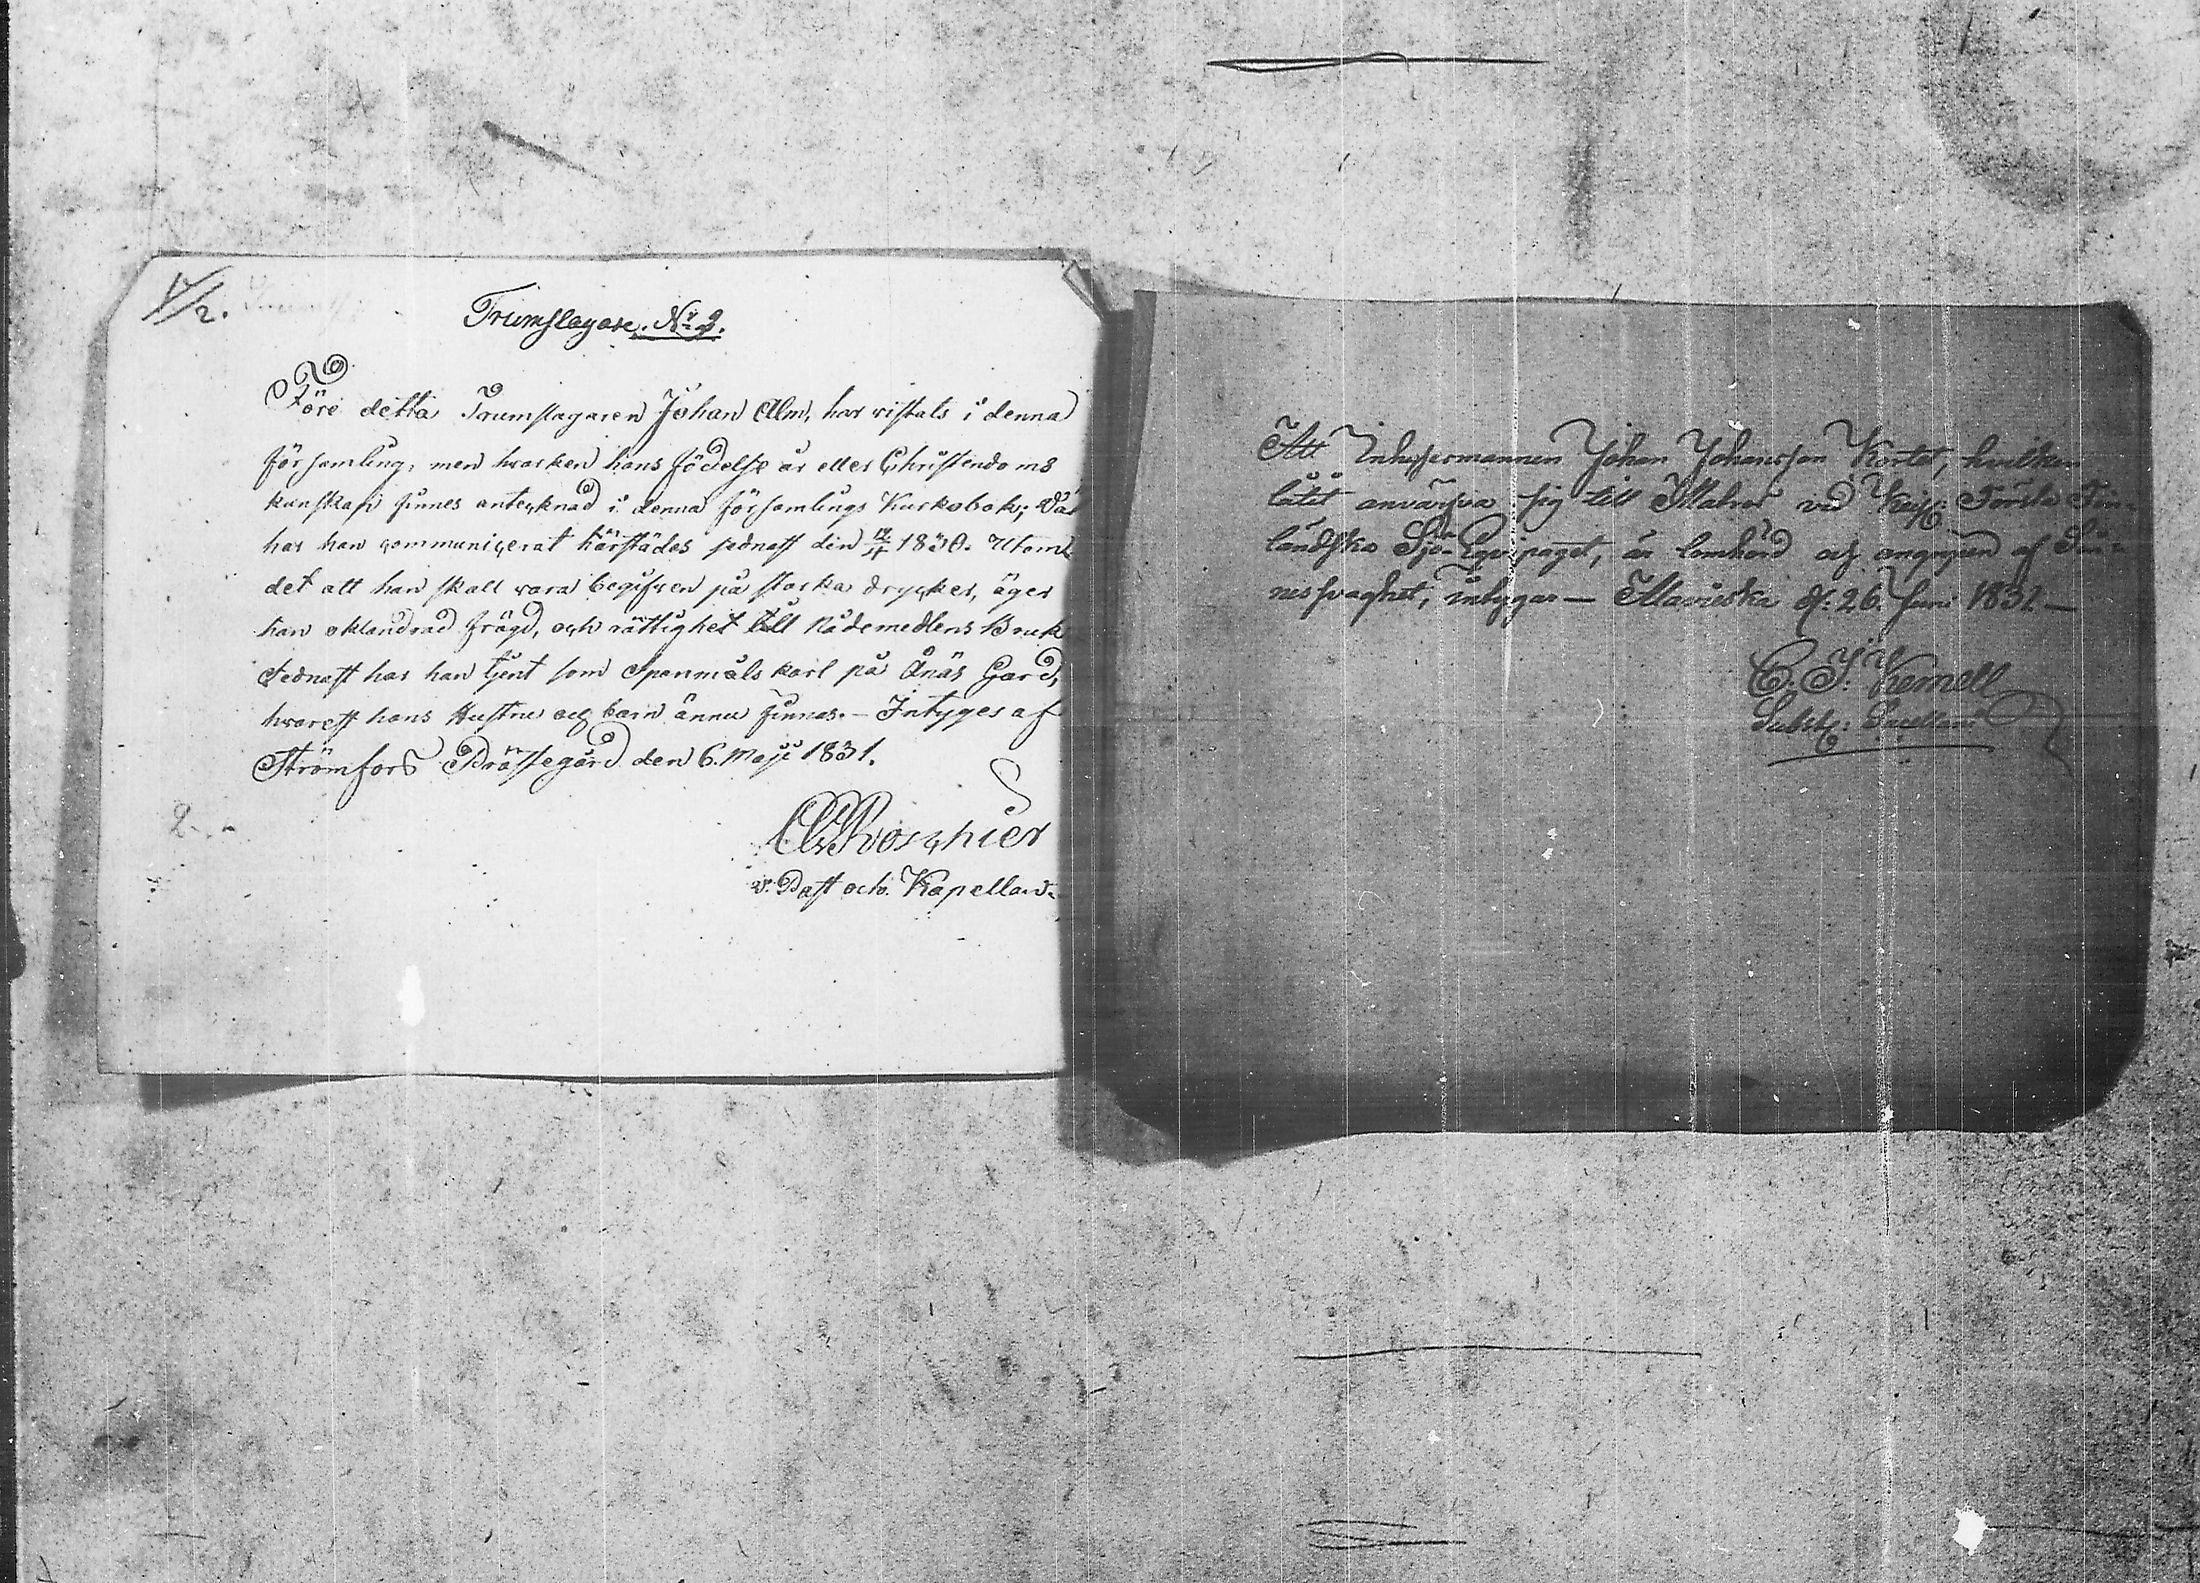 Trumslagare. No 2.
Före detta Trumslagaren Johan Alm, har vistats i denna
församling, men hvarken hans födelse år eller Christendoms
kunskap finnes antecknad i denna församlings Kyrkobok; Väl
har han communicerat härstädes sednast den 1830. Utom
det att han skall vara begifven på starka drycker, äger
han oklandrad frägd, och rättighet till Nådemedlens Bruk
Sednast har han tjent som Spanmåls karl påÅnäs Gård,
hvarest hans Hustru och barn ännu finnas. – Intyges af
Strömfors Prästegård den 6. Maji 1831.
Roschier
v. Past och. Kapellan.
Att Inhysesmannen Johan Johansson Kortet, hvilken
låtit anvärfva sig till Matros vid Keis: Första Fin-
ländska Sjö-Equipaget, är lomhörd och angripen af Sin-
nessvaghet, intygar – Alavieska d. 26. Juni 1831 –
C. J. Kemell
Subst: Sacellani